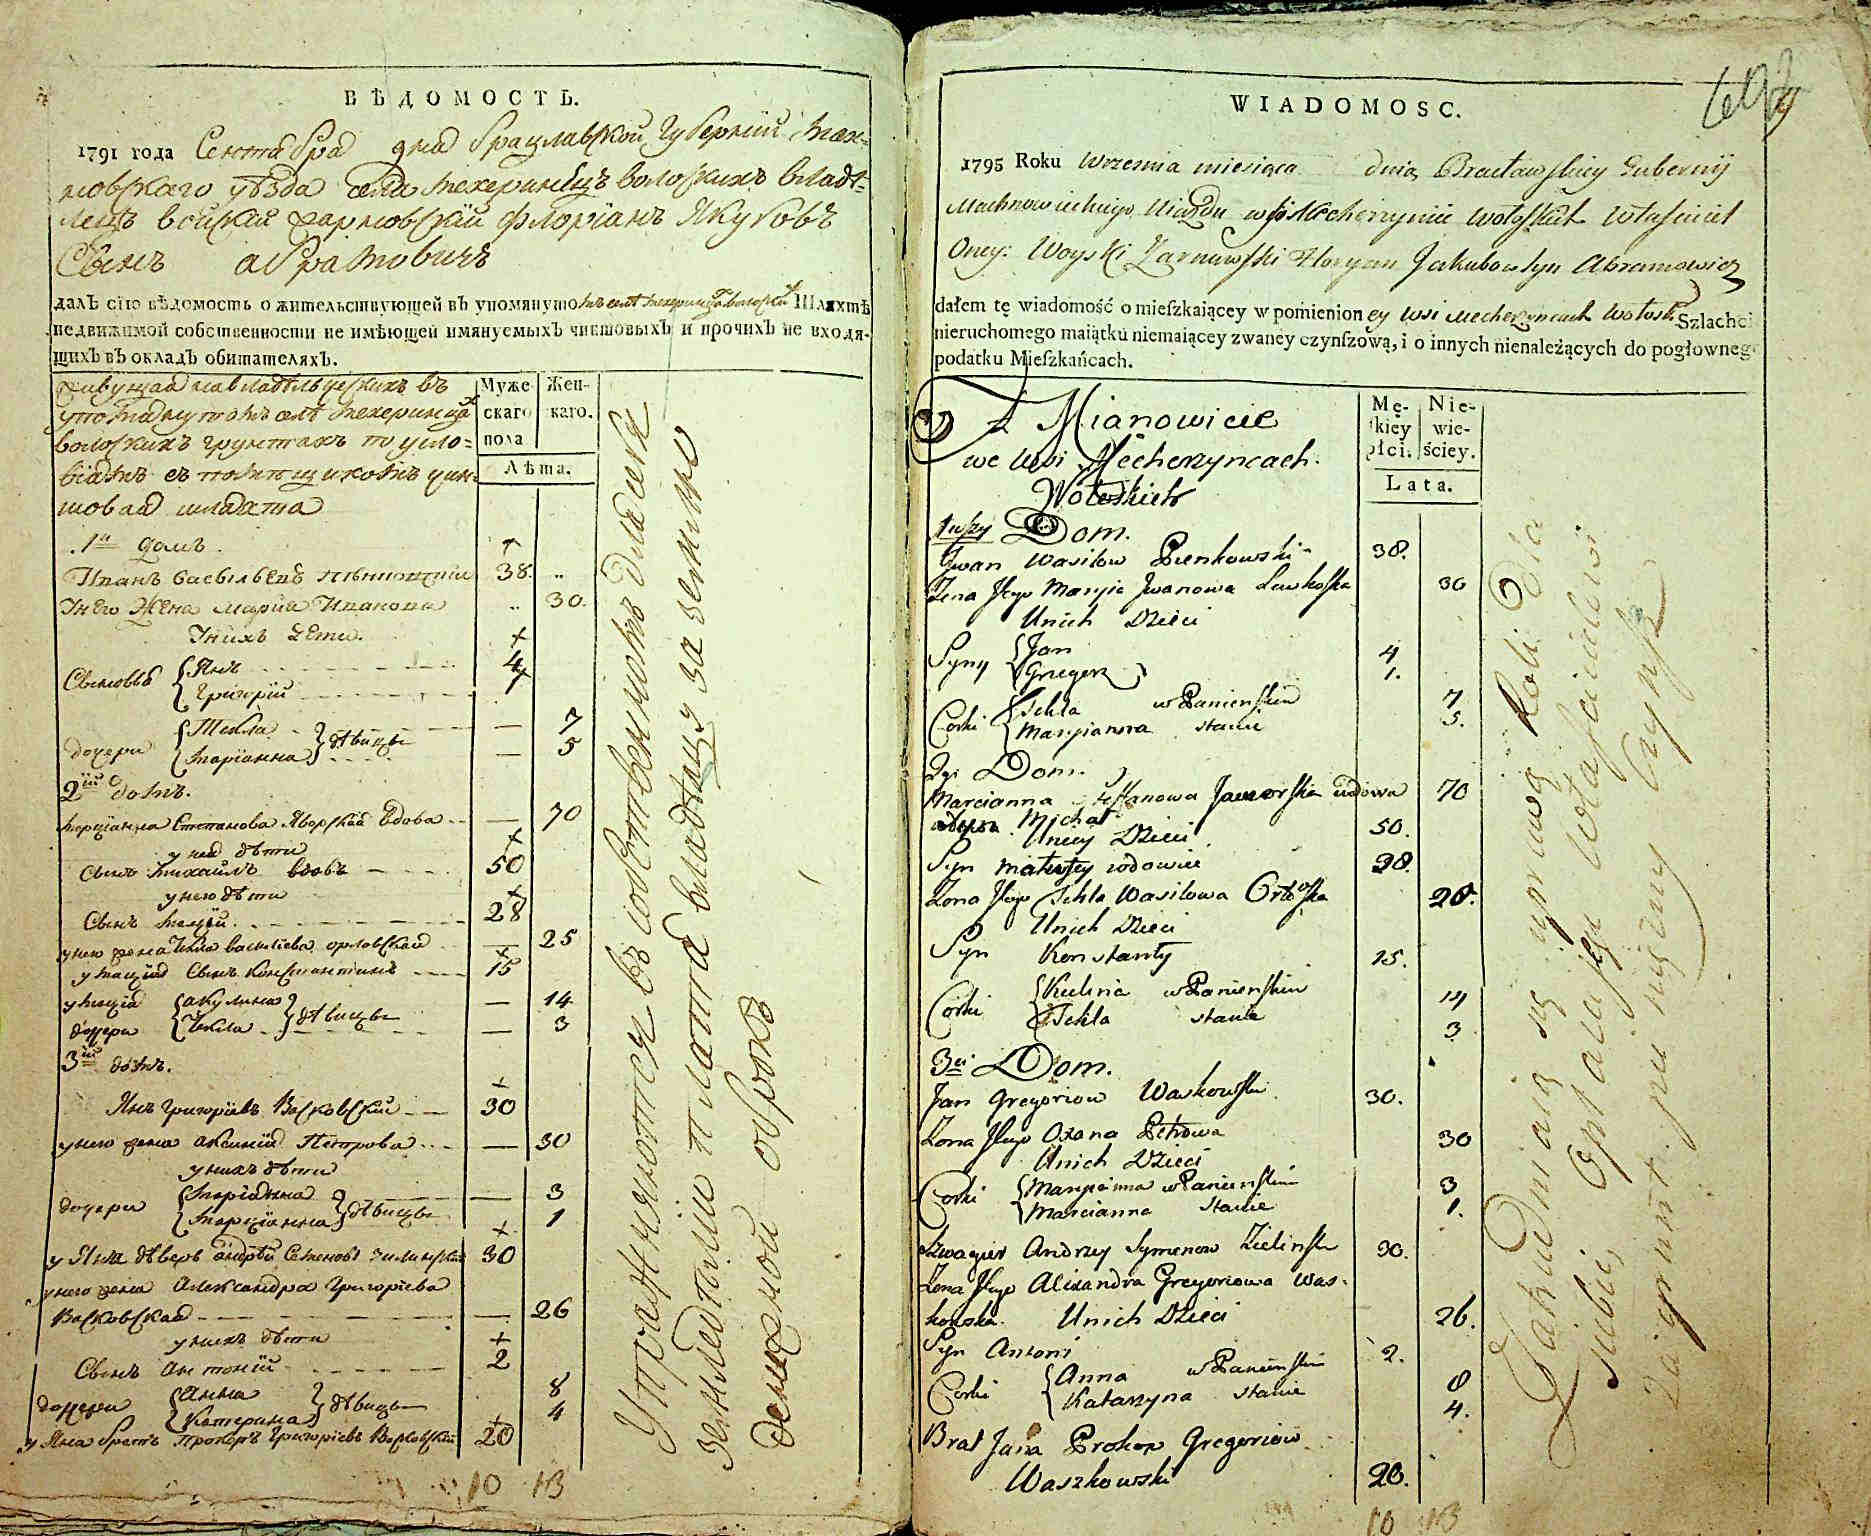 ВѢДОМОСТЬ.
1791 года Сентября дня Брацлавской Губернїи Мах-
новскаго уѣзда села Мехеринецъ волоскихъ владѣ-
лецъ войскій Флорїанъ Якубовъ
Сынъ Абрамовичъ
далъ сїю вѣдомость о жительствующей въ упомянутомъ селѣ Шляхтѣ
недвижимой собственности не имѣющей имянуемыхъ чиншовыхъ и прочихъ не входя-
щихъ въ окладъ обитателяхъ.
живущая на владѣльческихъ въ
упомянутомъ селѣ Мехеринцахъ
волоскихъ грунтахъ по усло-
віямъ съ помѣщикомъ чин-
шовая шляхта
Муже скаго пола
Жен- скаго.
Лѣта.
1й домъ.
Иванъ Васильевъ 38. ..
У него Жена Марія Иванова .. 30.
У нихъ дети.
Сыновья Янъ 4
Григорій 1
дочери Текла 7
Маріанна дѣвицы 5
2ій домъ.
Марціанна Степанова Яворская вдова 70
у ней дѣти
Сынъ Михайлъ вдовъ 50
у него дѣти
Сынъ 28
у него жена Текла Василіева орловская 25
Сынъ Константинъ 15
дочери акулина 14
Текла дѣвицы 3
3ій домъ.
Янъ Григоріевъ Васковскій 30
у него жена Петрова 30
у нихъ дѣти
дочери Маріанна 3
Марціанна дѣвицы 1
у Яна дѣверь андрѣй Семеновъ 30
у него жена Александра Григоріева
Васковская 26
у нихъ дѣти
Сынъ Антоній 2
дочери Анна 8
Катерина дѣвицы 4
у Яна братъ Прокопъ Григоріевъ Васковскій 20
10 13
Упражняются въ собственномъ для себя
земледѣліи и платя владѣльцу за землю
денежной оброкъ
WIADOMOSC.
1795 Roku Wrzesnia miesiąca dnia Bractawskiey Gubernij
Machnowieckiego Uiazdu wsi Mecherzyniec Wołoskich Własciciel
Oney: Woyski Floryan Jakubow Syn Abramowicz
dałem tę wiadomość o mieſzkaiącey w pomienioney Wsi Mecherzyncach Wołosk. Szlachci
nieruchomego maiątku niemaiącey zwaney czynſzową, i o innych nienależących do pogłownego
podatku Mieſzkańcach.
A Mianowicie
we Wsi Mecherzyncach
Wołoskich
Mę- ſkiey płci.
Nie- wie- ściey.
Lata.
1wszy Dom.
Iwan Wasilow Pienkowski 38.
Zona Jego Maryia Iwanowa 30
Unich Dzieci
Syny Jan 4
Grzegorz 1.
Corki Tekla w Panienskim 7
Maryianna stanie 5.
2gi Dom.
Marcianna Steffanowa Jaworska wdowa 70
Michał 50.
Uniey Dzieci
Syn 28.
Zona Jego Tekla Wasilowa Orłoska 28.
Unich Dzieci
Syn Konstanty 15.
Corki Kulina w Panienskim 14
Tekla stanie 3
3ci Dom.
Jan Gregoriow Waskowski 30.
Zona Jego Oxana Petrowa 30
Unich Dzieci
Corki Maryianna w Panienskim 3
Marcianna Stanie 1.
Szwagier Andrzey Symenow Zielinski 30.
Zona Jego Alexandra Gregoriowa Was-
kowska 26.
Unich Dzieci
Syn Antoni 2.
Corki Anna w Panienskim 8
Katarzyna stanie 4.
Brat Jana Prokop Gregoriow
Waszkowski 20.
10 13
Zatrudniaią się uprawą Roli Dla
siebie, Opłacaiąc Własicielowi
za grunt pieniężny Czynsz